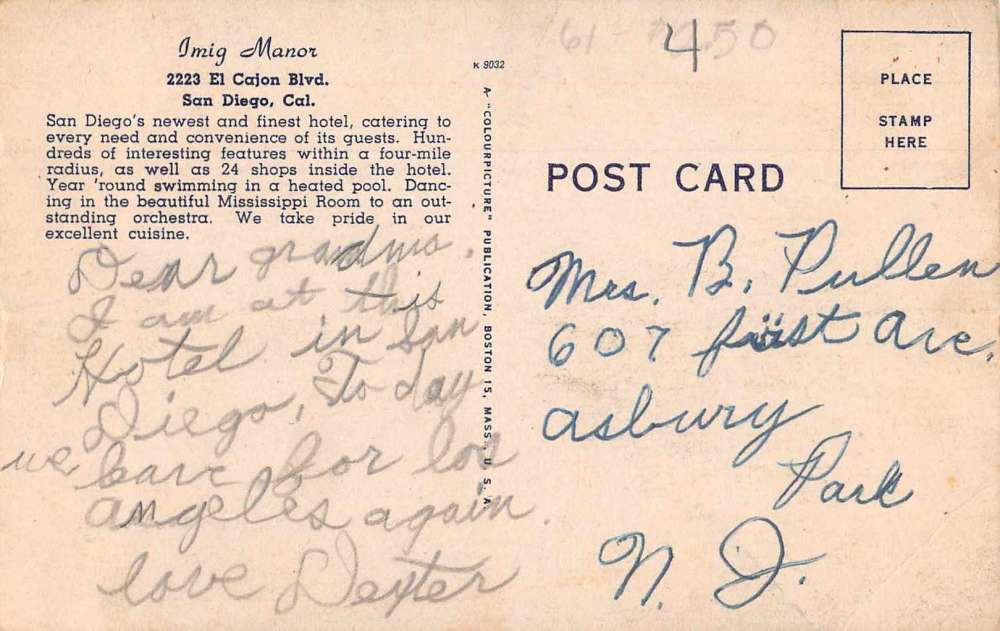 Imig Manor
2223 El Cajon Blvd.
San Diego, Cal.
San Diego's newest and finest hotel, catering to
every need and convenience of its guests. Hun-
dreds of interesting features within a four-mile
radius, as well as 24 shops inside the hotel.
Year 'round swimming in a heated pool. Danc-
ing in the beautiful Mississippi Room to an out-
standing orchestra. We take pride in our
excellent cuisine.
Dear grandma,
I am at this
Hotel in San
Diego, To day
we leave for los
angeles again.
love Dexter
K 9032
A "COLOURPICTURE" PUBLICATION, BOSTON 15, MASS. U. S. A.
4
POST CARD
PLACE
STAMP
HERE
Mrs. B. Pullen
607 first ave.
asbury
Park
N. J.